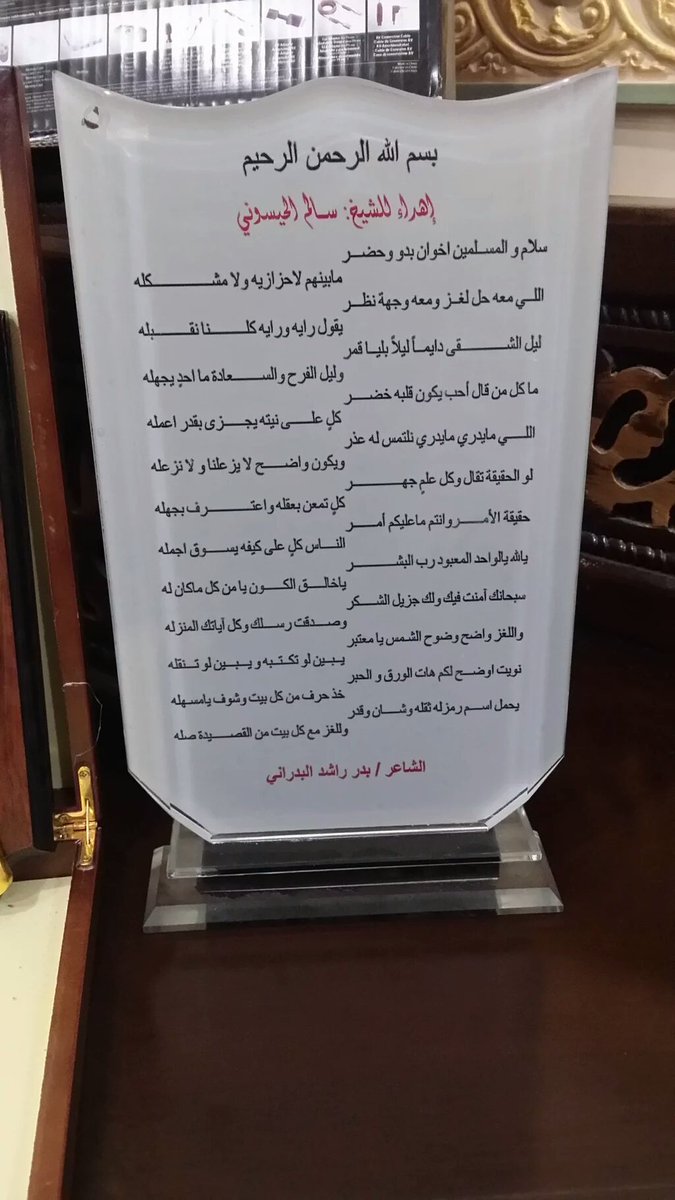 بسم الله الرحمن الرحيم
إهداء للشيخ: سالم الحيسوني
سلام و المسلمين اخوان بدو وحضر
مابينهم لاحزازيه ولا مشكله
اللي معه حل لغز ومعه وجهة نظر
يقول رايه ورايه كلنا نقبله
ليل الشقى دايماً ليلاً بليا قمر
وليل الفرح والسعادة ما احدٍ يجهله
ما كل من قال أحب يكون قلبه خضر
كلٍ على نيته يجزى بقدر اعمله
اللي مايدري مايدري نلتمس له عذر
ويكون واضح لا يزعلنا و لا نزعله
لو الحقيقة تقال وكل علمٍ جهر
كلٍ تمعن بعقله واعترف بجهله
حقيقة الأمر وانتم ماعليكم أمر
الناس كلٍ على كيفه يسوق اجمله
يالله يالواحد المعبود رب البشر
ياخالق الكون يا من كل ماكان له
سبحانك آمنت فيك ولك جزيل الشكر
وصدقت رسلك وكل آياتك المنزله
واللغز واضح وضوح الشمس يا معتبر
يبين لو تكتبه و يبين لو تنقله
نويت اوضح لكم هات الورق و الحبر
خذ حرف من كل بيت وشوف يامسهله
يحمل اسم رمزله ثقله وشان وقدر
وللغز مع كل بيت من القصيدة صله
الشاعر / بدر راشد البدراني